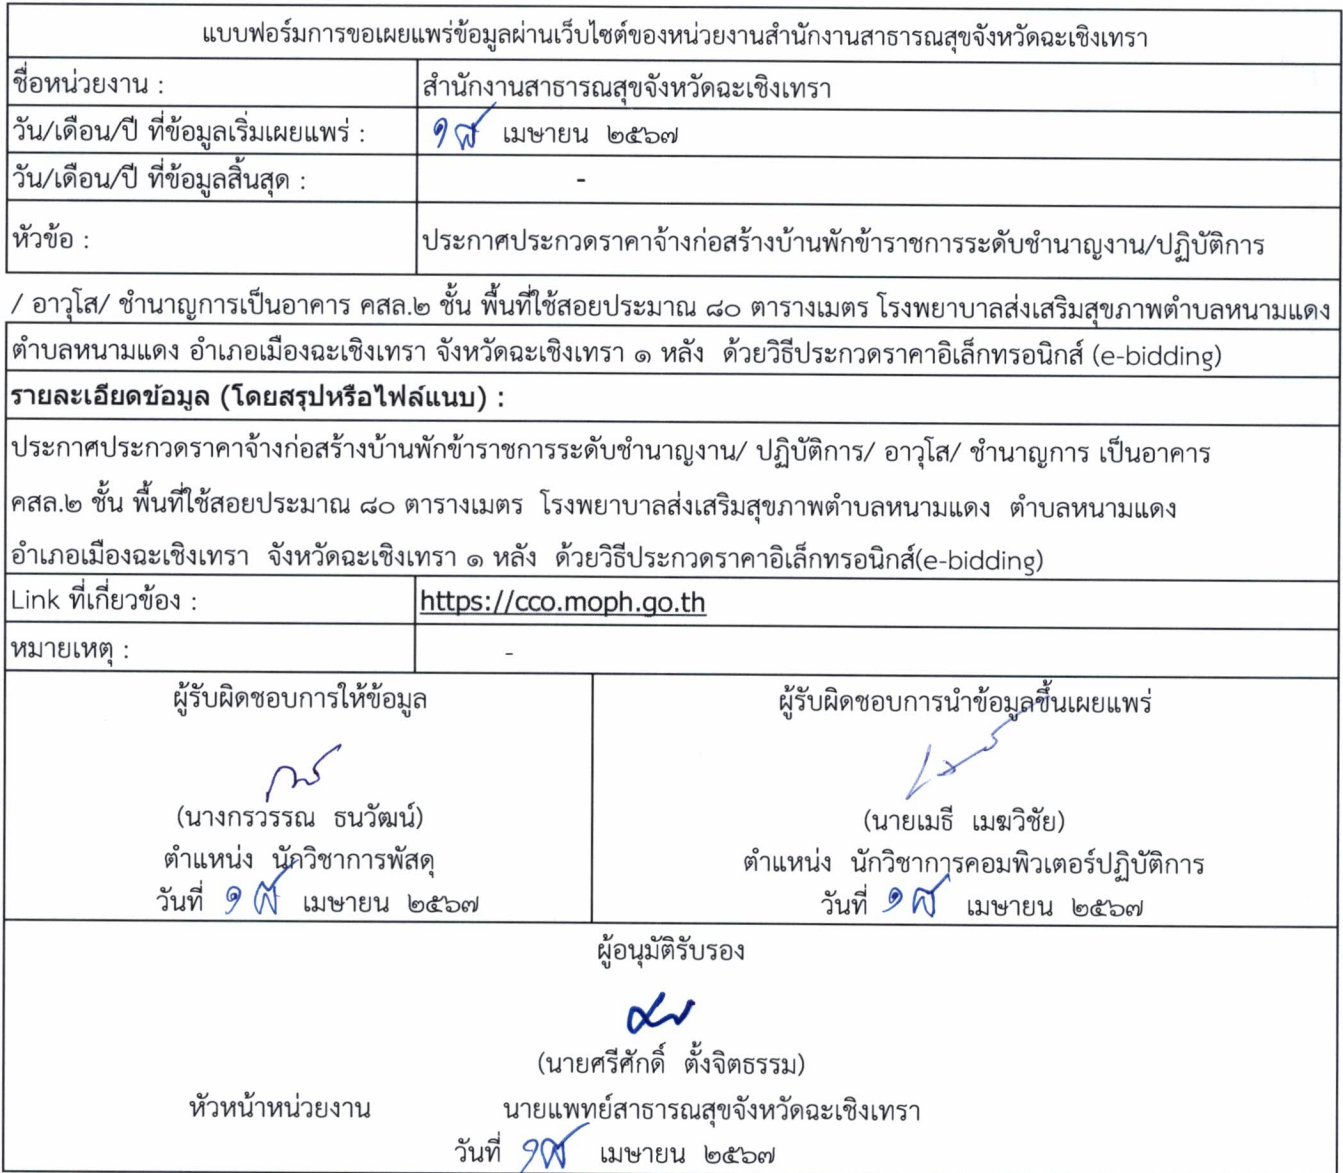 แบบฟอร์มการขอเผยแพร่ข้อมูลผ่านเว็บไซต์ของหน่วยงานสำนักงานสาธารณสุขจังหวัดฉะเชิงเทรา
ชื่อหน่วยงาน : สำนักงานสาธารณสุขจังหวัดฉะเชิงเทรา
วัน/เดือน/ปี ที่ข้อมูลเริ่มเผยแพร่ : เมษายน ๒๕๖๗
วัน/เดือน/ปี ที่ข้อมูลสิ้นสุด : -
หัวข้อ : ประกาศประกวดราคาจ้างก่อสร้างบ้านพักข้าราชการระดับชำนาญงาน/ปฏิบัติการ
/ อาวุโส/ ชำนาญการเป็นอาคาร คสล.๒ ชั้น พื้นที่ใช้สอยประมาณ ๘๐ ตารางเมตร โรงพยาบาลส่งเสริมสุขภาพตำบลหนามแดง
ตำบลหนามแดง อำเภอเมืองฉะเชิงเทรา จังหวัดฉะเชิงเทรา ๑ หลัง ด้วยวิธีประกวดราคาอิเล็กทรอนิกส์ (e-bidding)
รายละเอียดข้อมูล (โดยสรุปหรือไฟล์แนบ) :
ประกาศประกวดราคาจ้างก่อสร้างบ้านพักข้าราชการระดับชำนาญงาน/ ปฏิบัติการ/ อาวุโส/ ชำนาญการ เป็นอาคาร
คสล.๒ ชั้น พื้นที่ใช้สอยประมาณ ๘๐ ตารางเมตร โรงพยาบาลส่งเสริมสุขภาพตำบลหนามแดง ตำบลหนามแดง
อำเภอเมืองฉะเชิงเทรา จังหวัดฉะเชิงเทรา ๑ หลัง ด้วยวิธีประกวดราคาอิเล็กทรอนิกส์(e-bidding)
Link ที่เกี่ยวข้อง : https://cco.moph.go.th
หมายเหตุ : -
ผู้รับผิดชอบการให้ข้อมูล
(นางกรวรรณ ธนวัฒน์)
ตำแหน่ง นักวิชาการพัสดุ
วันที่ เมษายน ๒๕๖๗
ผู้รับผิดชอบการนำข้อมูลขึ้นเผยแพร่
(นายเมธี เมฆวิชัย)
ตำแหน่ง นักวิชาการคอมพิวเตอร์ปฏิบัติการ
วันที่ เมษายน ๒๕๖๗
ผู้อนุมัติรับรอง
(นายศรีศักดิ์ ตั้งจิตธรรม)
หัวหน้าหน่วยงาน นายแพทย์สาธารณสุขจังหวัดฉะเชิงเทรา
วันที่ เมษายน ๒๕๖๗